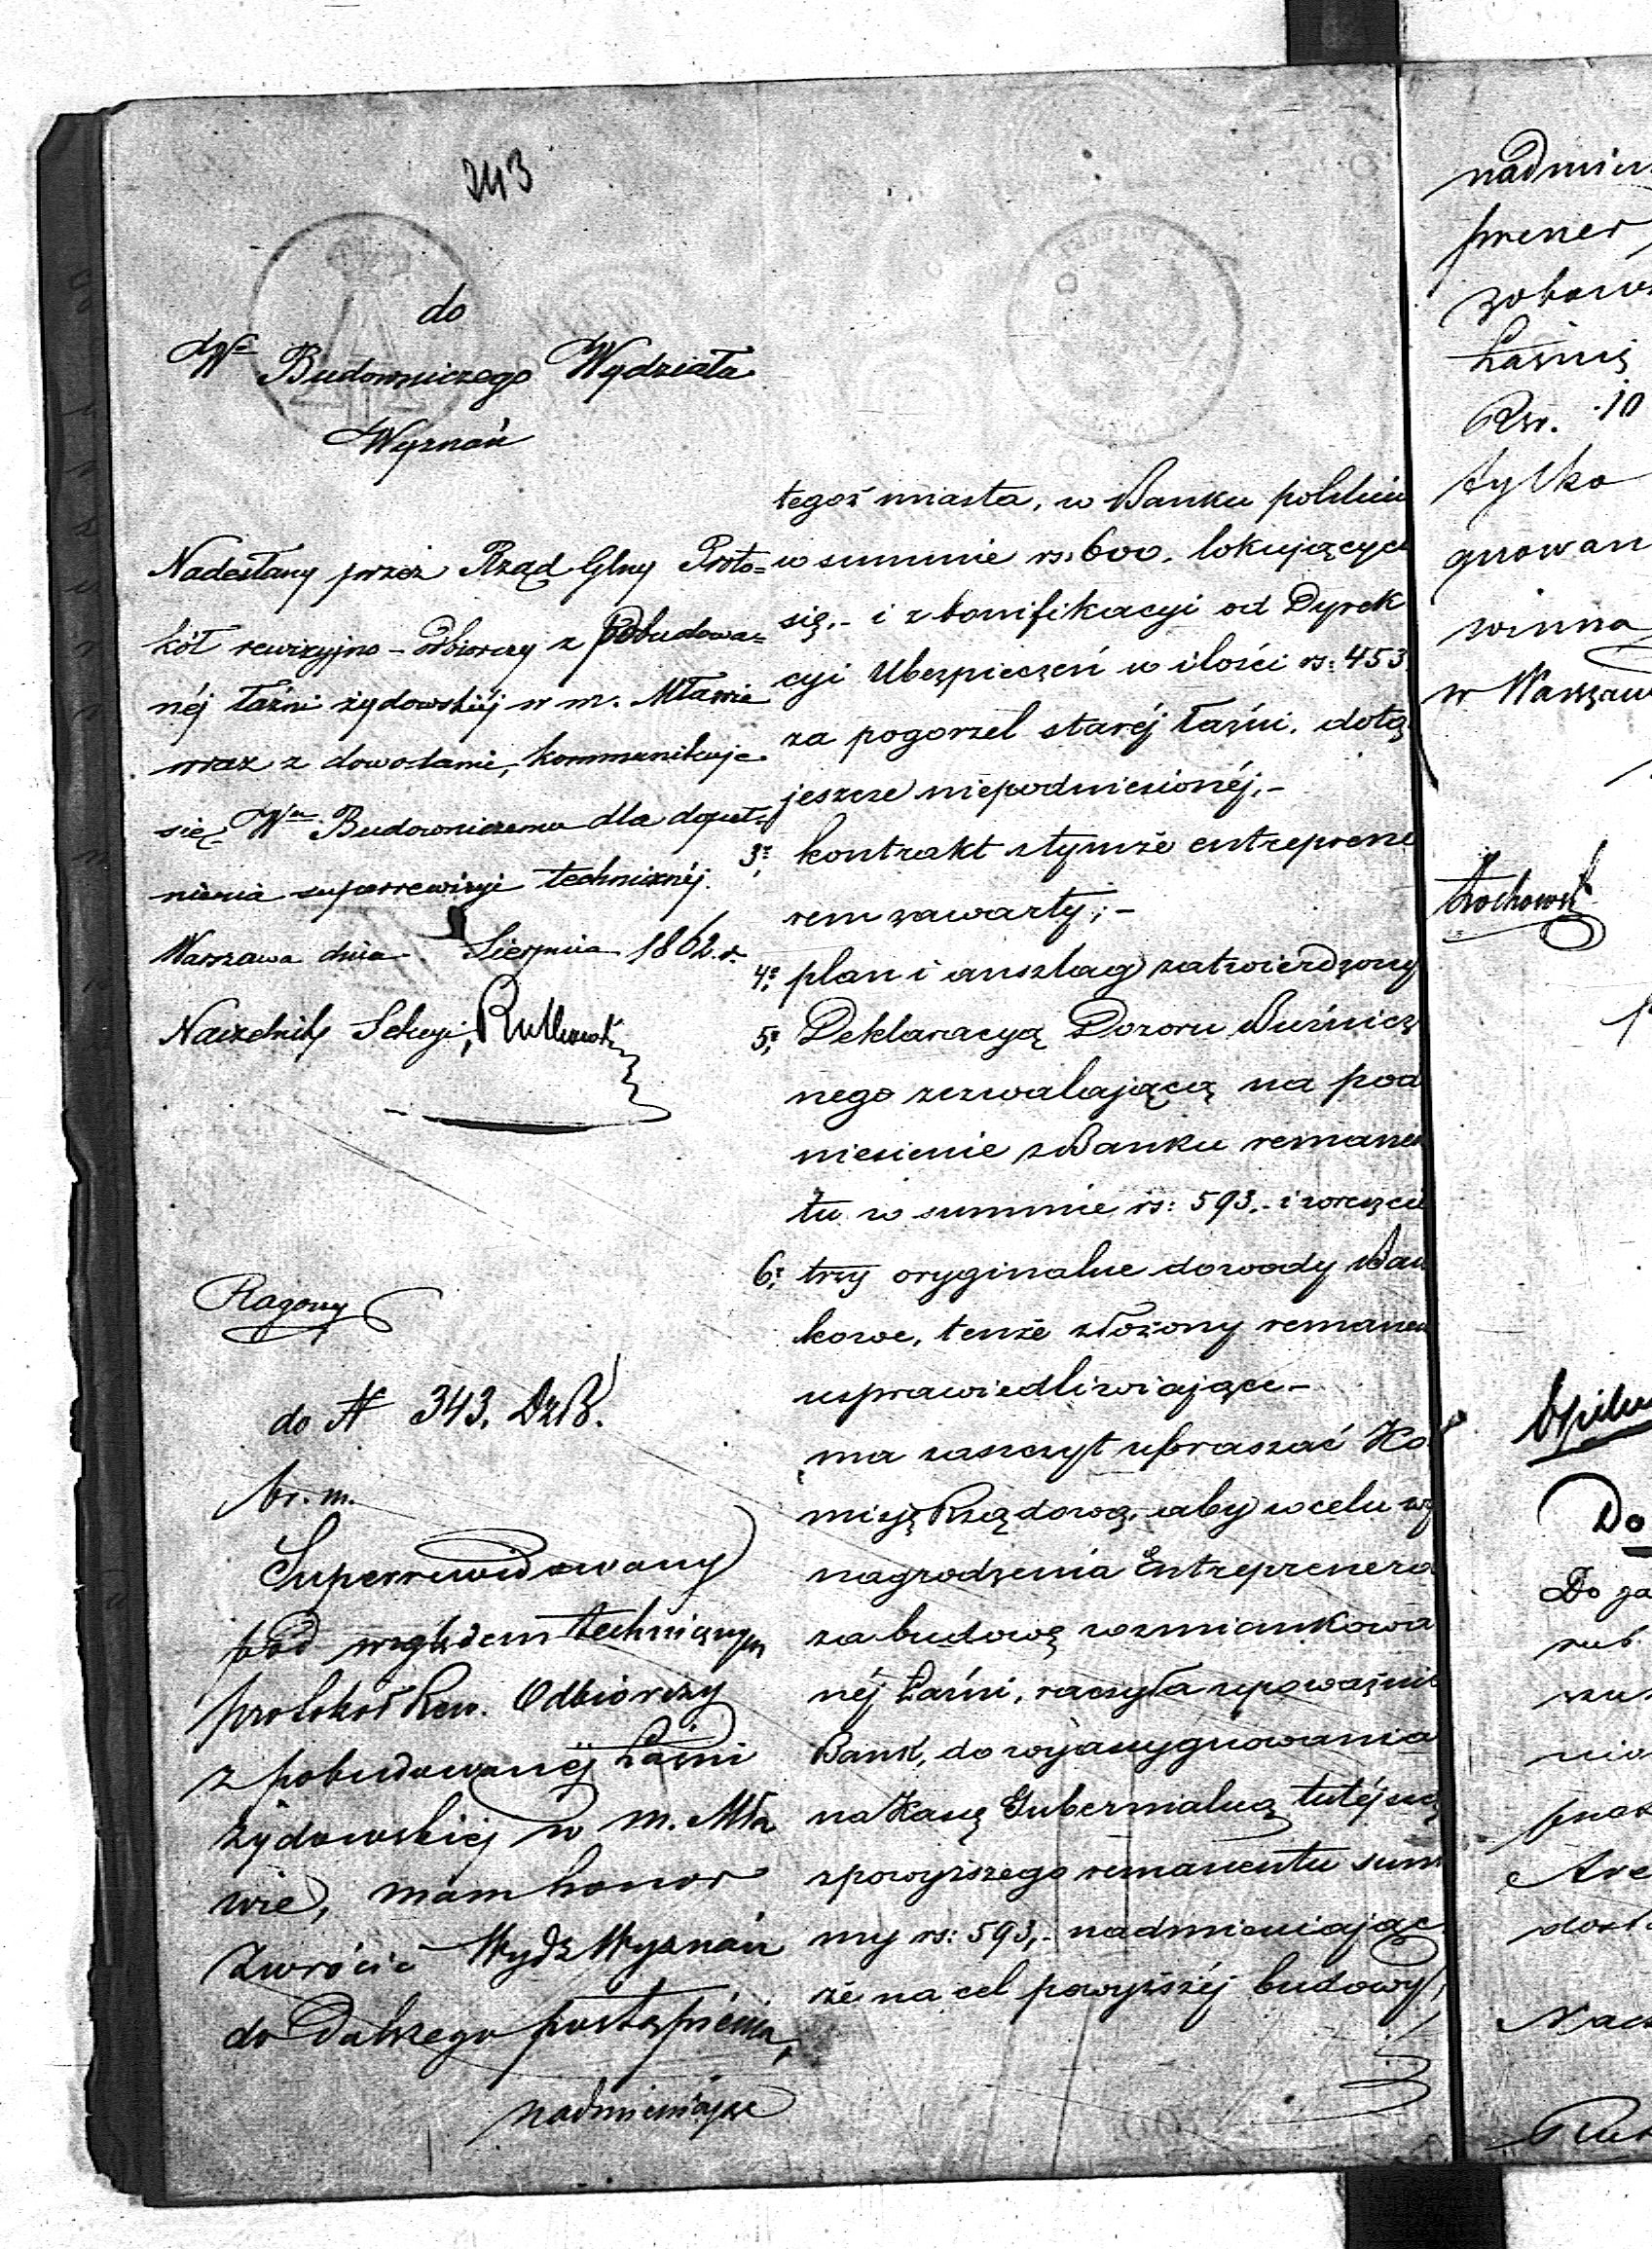 243
do
Wo Budowniczego Wydziału
Wyznań
Nadesłany przez Rząd Glny Proto=
kół rewizyjno-odbiorczy z pobudowa=
néj łaźni żydowskiéj w m. Mławie
wraz z dowodami, kommunikuje
się Wmu Budowniczemu dla dopeł=
nienia superrewizyi technicznéj.
Warszawa dnia Sierpnia 1862 r.
Naczelnik Sekcyi, Rutkowski
do N 343. DzB.
br. m.
Superrewidowany
pod względem technicznym
protokół Rew. Odbiorczy
z pobudowanéj Łaźni
żydowskiej w m. Mła
wie, mam honor
zwrócić Wydz Wyznań
do dalszego postąpienia,
nadmieniając
tegoż miasta, w Banku polskim
w summie rs: 600. lokujących
się,- i z bonifikacyi od Dyrek
cyi Ubezpieczeń w ilości rs: 453
za pogorzel staréj łaźni, dotąd
jeszcze niepodniesionéj,-
3o kontrakt z tymże entreprene
rem zawarty;-
4o plan i anszlag zatwierdzony
5o Deklaracyą Dozoru Bużnicz
nego zezwalającą na pod
niesienie z Banku remanen
tu w summie rs: 593.- i wreszcie
6o trzy oryginalne dowody Ban
kowe, tenże złożony remanent
usprawiedliwiające-
ma zaszczyt upraszać Ko
misyę Rządową, aby w celu wy
nagrodzenia Entreprenera
za budowę wzmiankowa
néj Łaźni, raczyła upoważnić
Bank, do wyasygnowania
na Kasę Gubernialną tutéjszą
z powyższego remanentu sum
my rs: 593,- nadmieniając
że na cel powyższéj budowy,
nadmien
prener
zobow
Łaźnię
Rsr. 10
tylko
gnowan
winna
w Warszaw
Do
Do
rub.